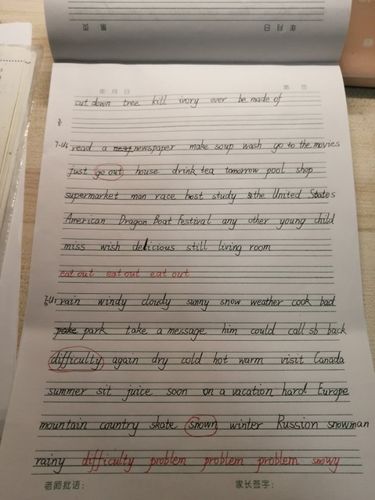 年 月 日
cut down tree kill ivory ever be made of
8.
7-U6 read a newspaper make soup wash go to the movies
just go out house drink tea tomorrow pool shop
supermarket man race host study the United States
American Dragon Boat Festival any other young child
miss wish delicious still living room
eat out eat out eat out
7-U7 rain windy cloudy sunny snow weather cook bad
park take a message him could call sb back
difficulty again dry cold hot warm visit Canada
summer sit juice soon on a vacation hard Europe
mountain country skate snown winter Russion snowman
rainy difficulty problem problem problem snowy
老师批语： 家长签字：